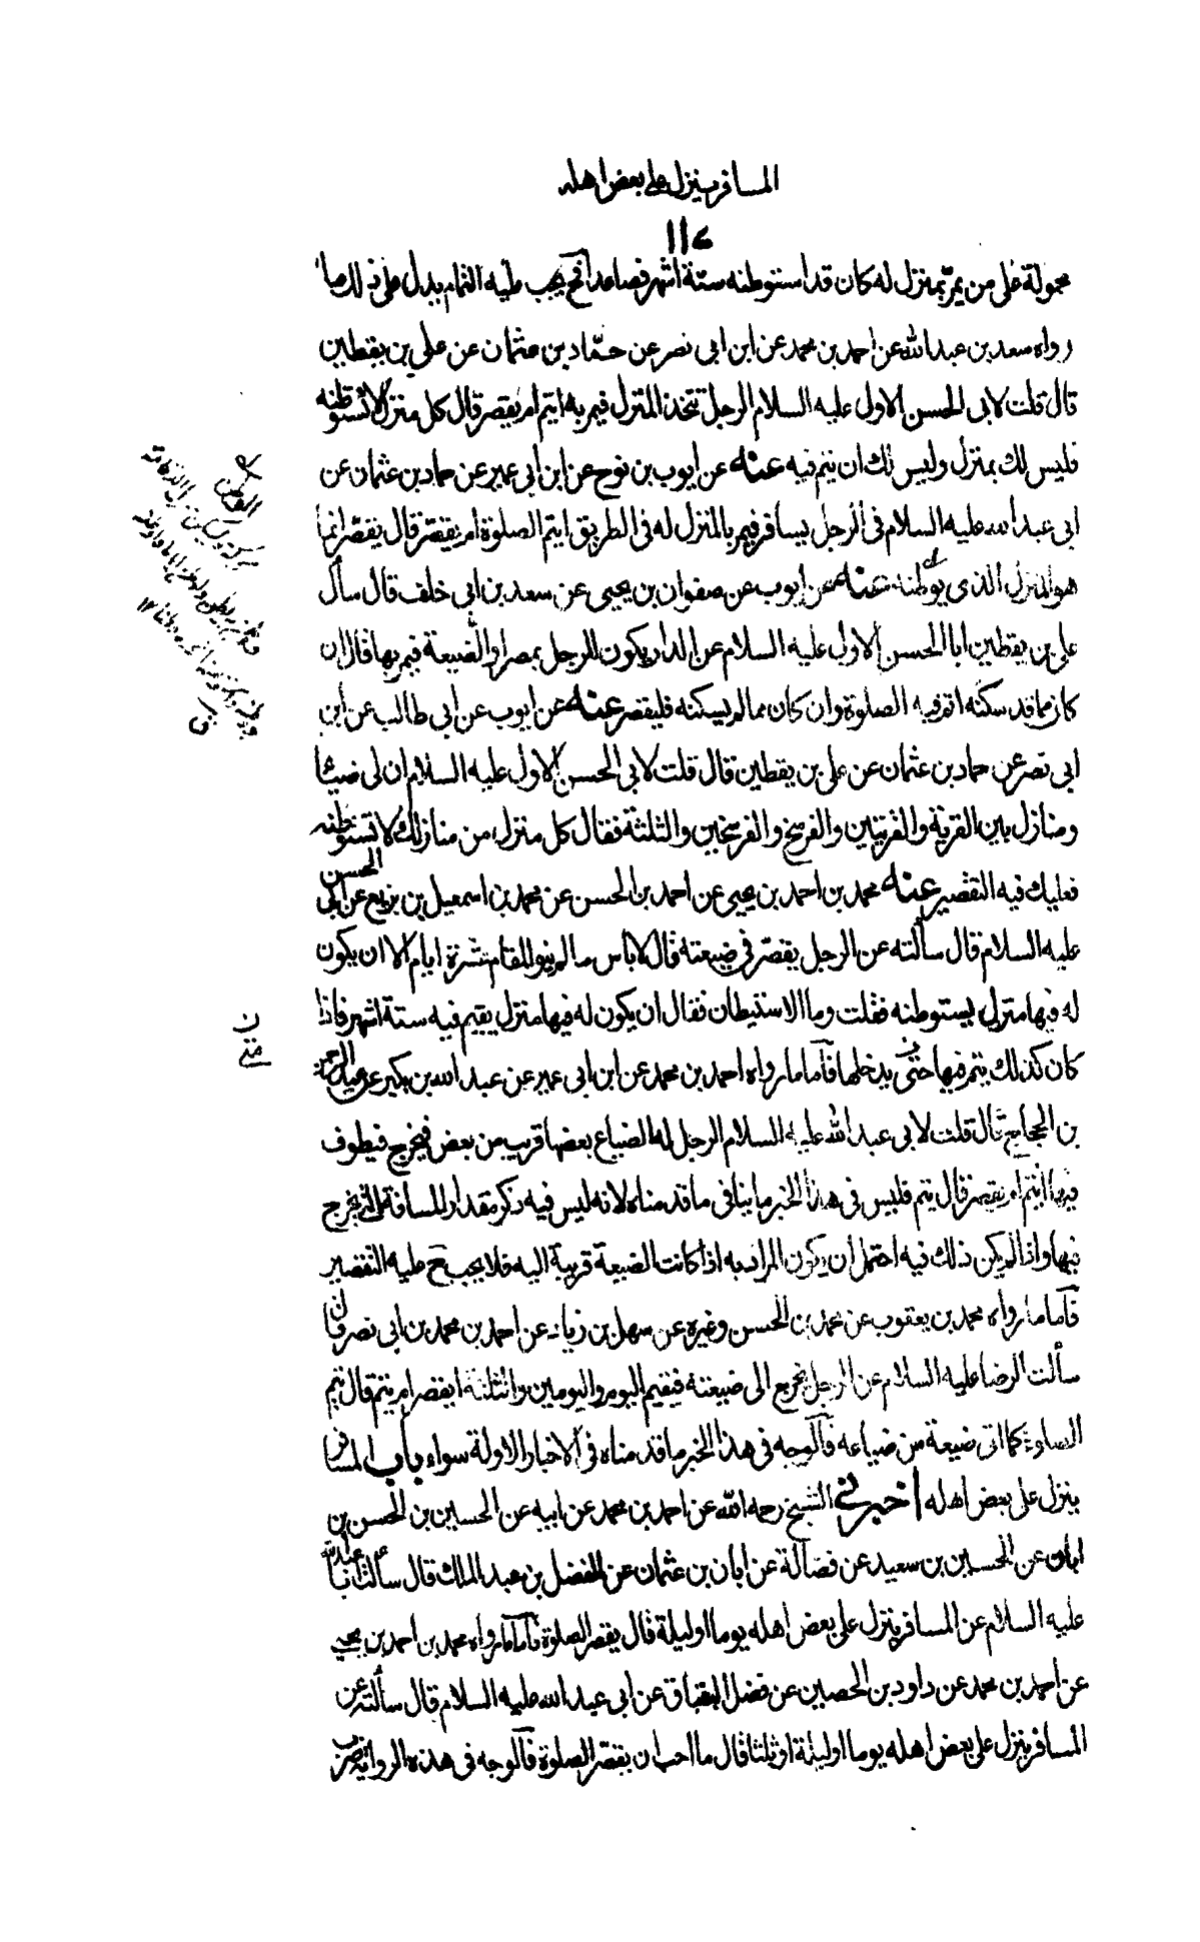 المسافر ينزل على بعض اهله
١١٤
محمولة على من يمرّ بمنزل له كان قد استوطنه ستة اشهر فصاعدا فح يجب عليه التمام يدل على ذلك ما
رواه سعد بن عبد الله عن احمد بن محمد عن ابن ابى نصر عن حمّاد بن عثمان عن على بن يقطين
قال قلت لابى الحسن الاول عليه السلام الرجل يتخذ المنزل فيمر به ايتم ام يقصر قال كل منزل لا تستوطنه
فليس لك بمنزل وليس لك ان يتم فيه عنه عن ايوب بن نوح عن ابن ابى عمير عن حماد بن عثمان عن
ابى عبد الله عليه السلام فى الرجل يسافر فيمر بالمنزل له فى الطريق ايتم الصلوة ام يقصّر قال يقصّر انما
هو المنزل الذى يوطنه عنه عن ايوب عن صفوان بن يحيى عن سعد بن ابى خلف قال سأل
على بن يقطين ابا الحسن الاول عليه السلام عن الدار يكون للرجل بمصر او الضيعة فيمر بها قال ان
كان مما قد سكنه اتم فيه الصلوة وان كان مما لم يسكنه فليقصر عنه عن ايوب عن ابى طالب عن ابن
ابى نصر عن حماد بن عثمان عن على بن يقطين قال قلت لابى الحسن الاول عليه السلام ان لى ضياعا
ومنازل بين القرية والقريتين والفرسخ والفرسخين والثلثة فقال كل منزل من منازلك لا تستوطنه
فعليك فيه التقصير عنه محمد بن احمد بن يحيى عن احمد بن الحسن عن محمد بن اسمعيل بن بزيع عن ابى الحسن
عليه السلام قال سألته عن الرجل يقصّر فى ضيعته قال لا باس ما لم ينو المقام عشرة ايام الا ان يكون
له فيها منزل يستوطنه فقلت وما الاستيطان فقال ان يكون له فيها منزل يقيم فيه ستة اشهر فاذا
كان كذلك يتم فيها حتى يدخلها فأما ما رواه احمد بن محمد عن ابن ابى عمير عن عبد الله بن بكير عن عبد الرحمن
بن الحجاج قال قلت لابى عبد الله عليه السلام الرجل له الضياع بعضها قريب من بعض فيخرج فيطوف
فيها ايتم ام يقصر قال يتم فليس فى هذا الخبر ما ينافى ما قدمناه لانه ليس فيه ذكر مقدار المسافة التى يخرج
فيها واذا لم يكن ذلك فيه احتمل ان يكون المراد به اذا كانت الضيعة قريبة اليه فلا يجب ح عليه التقصير
فأما ما رواه محمد بن يعقوب عن محمد بن الحسن وغيره عن سهل بن زياد عن احمد بن محمد بن ابى نصر قال
سألت الرضا عليه السلام عن الرجل يخرج الى ضيعته فيقيم اليوم واليومين والثلثة ايقصر ام يتم قال يتم
الصلوة كلما اتى ضيعة من ضياعه فالوجه فى هذا الخبر ما قدمناه فى الاخبار الاولة سواء باب المسافر
ينزل على بعض اهله اخبرنى الشيخ رحمه الله عن احمد بن محمد عن ابيه عن الحسين بن الحسن بن
ابان عن الحسين بن سعيد عن فضالة عن ابان بن عثمان عن الفضل بن عبد الملك قال سألت ابا عبد الله
عليه السلام عن المسافر ينزل على بعض اهله يوما او ليلة قال يقصر الصلوة فأما ما رواه محمد بن احمد بن يحيى
عن احمد بن محمد عن داود بن الحصين عن فضل البقباق عن ابى عبد الله عليه السلام قال سألته عن
المسافر ينزل على بعض اهله يوما او ليلة او ثلثا قال ما احب ان يقصّر الصلوة فالوجه فى هذه الرواية ضرب